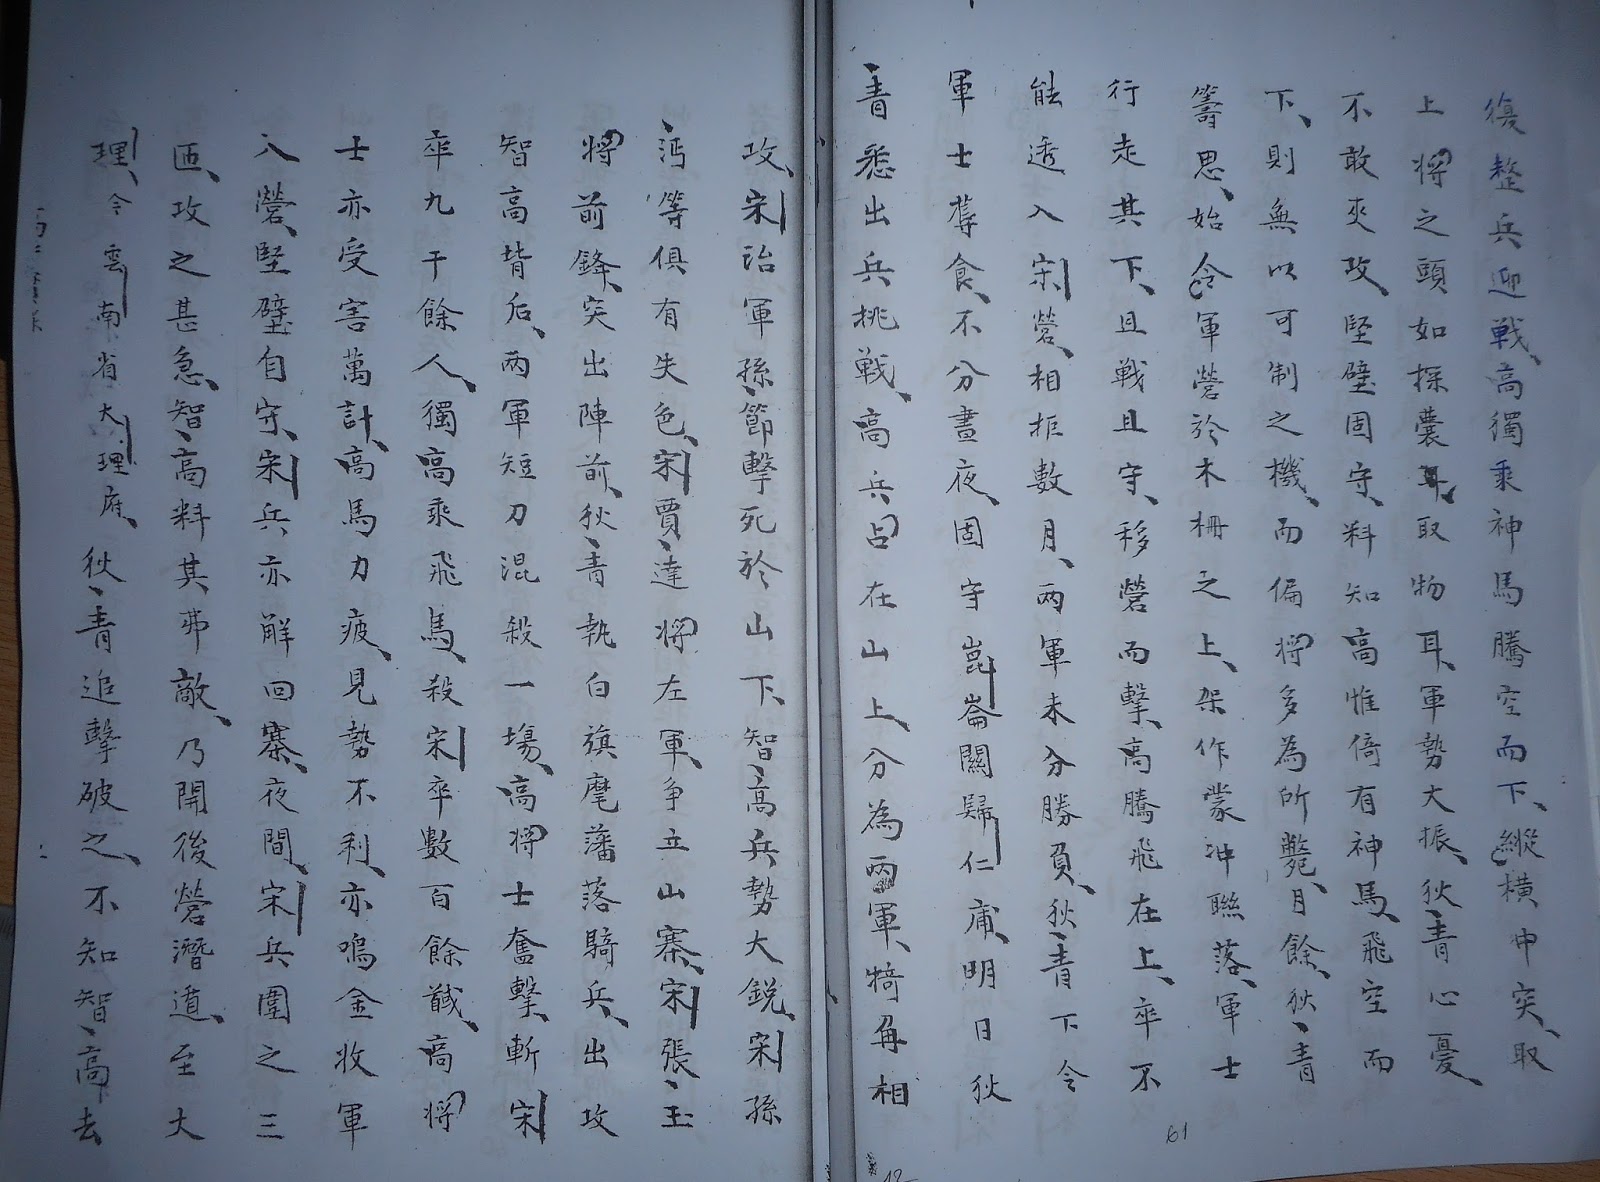 復整兵迎戰、高獨乘神馬騰空而下、縱橫冲突、取
上將之頭如探囊取物耳、軍勢大振、狄青心憂
不敢夾攻、堅壁固守、料知高惟倚有神馬、飛空而
下、則無以可制之機、而偏將多為所斃、月餘、狄青
籌思、始令軍營於木柵之上、架作蒙冲聯落、軍士
行走其下、且戰且守、移營而擊、高騰飛在上、卒不
能透入宋營、相拒數月、兩軍未分勝負、狄青下令
軍士蓐食、不分晝夜、固守崑崙關歸仁庙、明日狄
青悉出兵挑戰、高兵占在山上、分為兩軍、犄角相
61
攻、宋治軍孫節擊死於山下、智高兵勢大銳、宋孫
沔等俱有失色、宋賈逵將左軍、争立山寨、宋張玉
將前鋒、突出陣前、狄青執白旗麾藩落騎兵、出攻
智高背后、两軍短刀混殺一場、高將士奮擊、斬宋
卒九千餘人、獨高乘飛馬、殺宋卒數百餘馘、高將
士亦受害萬計、高馬力疲、見勢不利、亦鳴金收軍
入營、堅壁自守、宋兵亦解回寨、夜間、宋兵圍之三
匝、攻之甚急、智高料其弗敵、乃開後營潛遁、至大
理、今雲南省大理府、狄青追擊破之、不知智高去